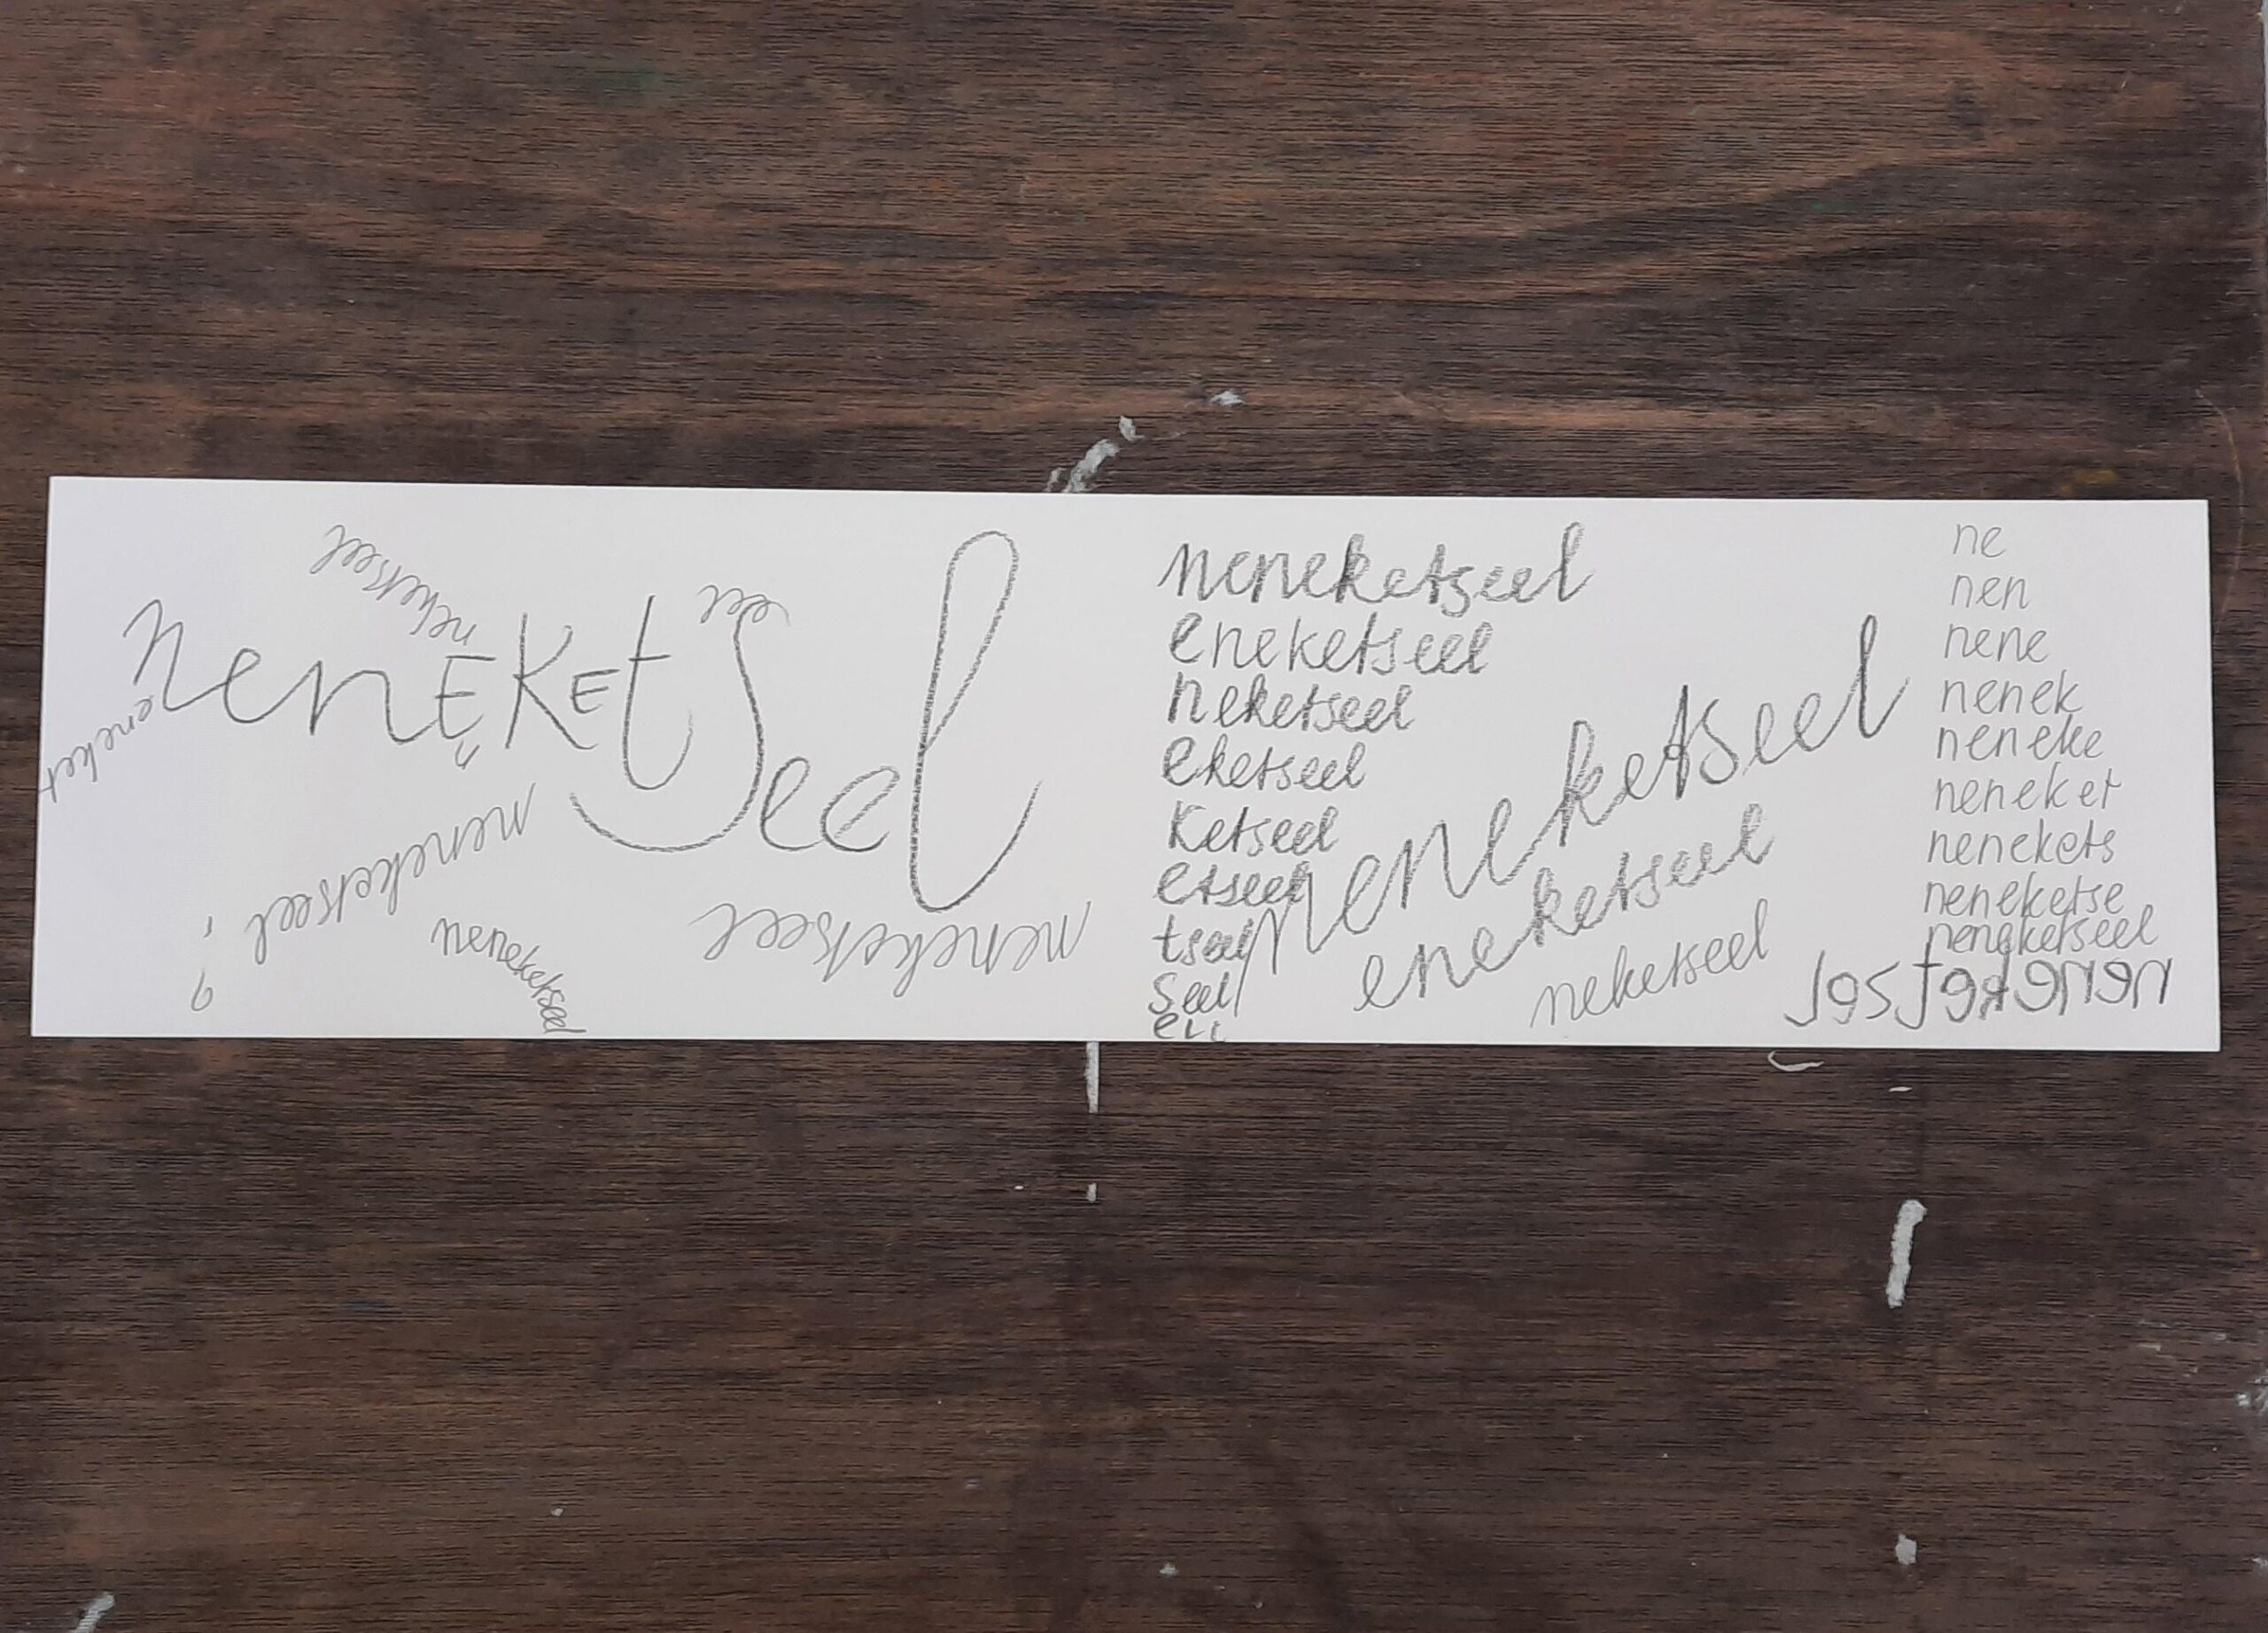 neketseel
eel
nenEKEtSeel
neneket
n
neneketseel
neneketseel
neneketseel
?
neneketseel
eneketseel
neketseel
eketseel
ketseel
etseel
tseel
seel
neneketseel
eneketseel
neketseel
ne
nen
nene
nenek
neneke
neneket
nenekets
neneketse
neneketseel